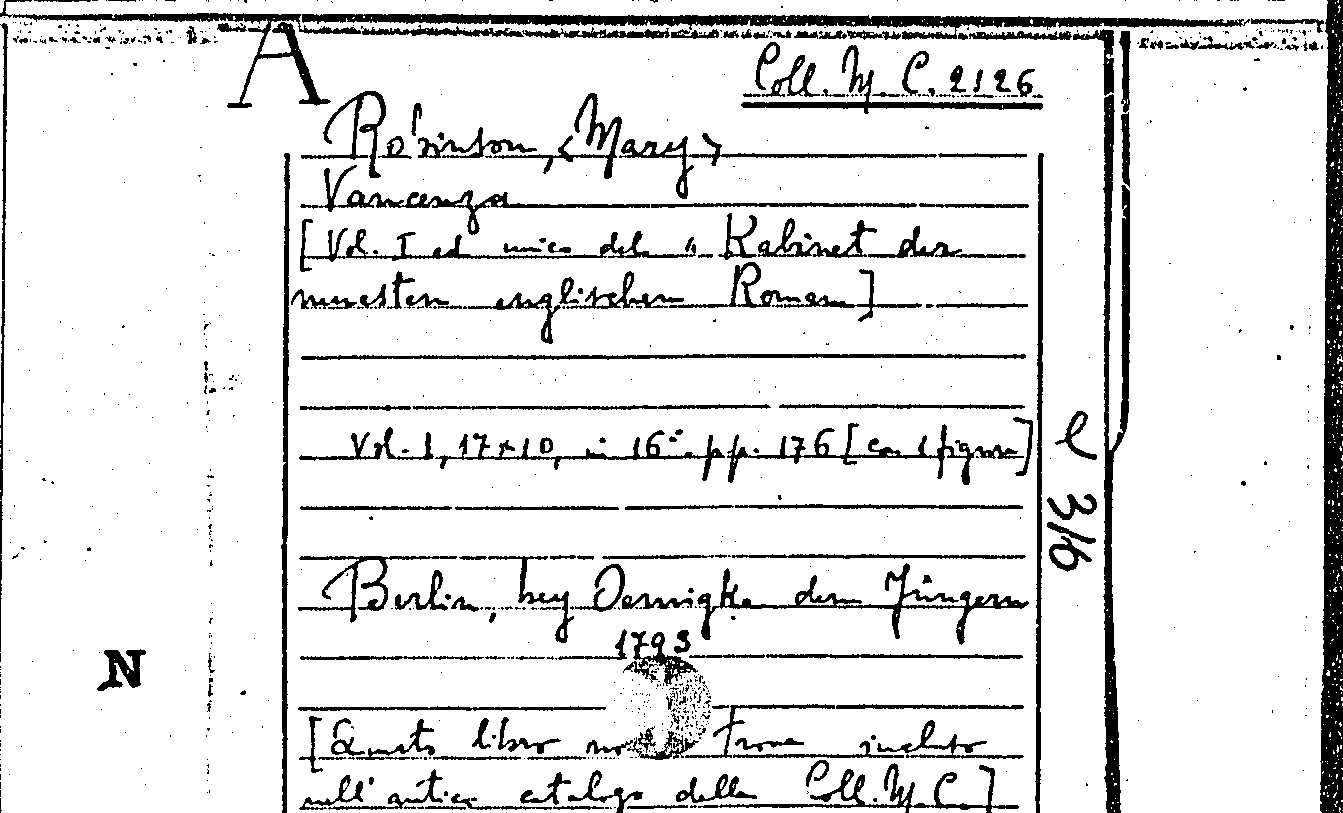 A
Coll. M. C. 2126
Robinson, <Mary>
Vancenza
[Vol. I ed unico del " Kabinet der
neuesten englischen Roman]
Vol. 1, 17x10, in 16° pp. 176 [con 1 figura]
e 3/6
Berlin, bey Oemigke dem Jüngern
1793
N
[Questo libro no trova incluso
nell' antico catalogo della Coll. M. C.]